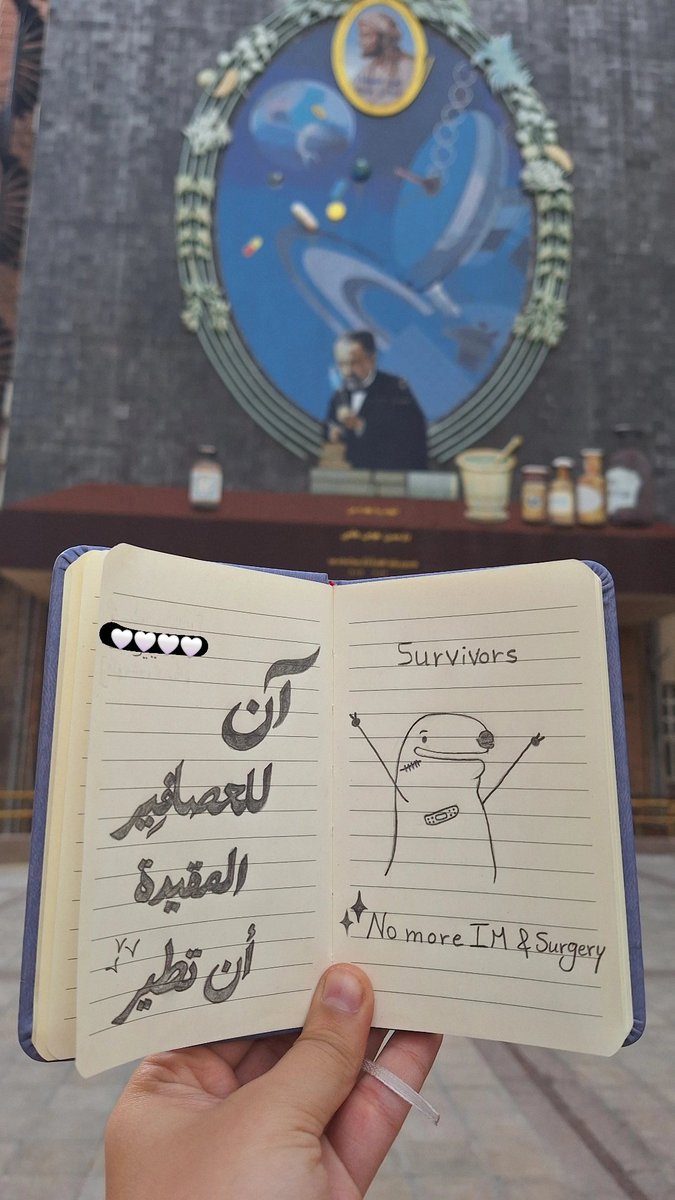 آن
للعصافير
المقيدة
أن تطير
Survivors
No more IM & Surgery